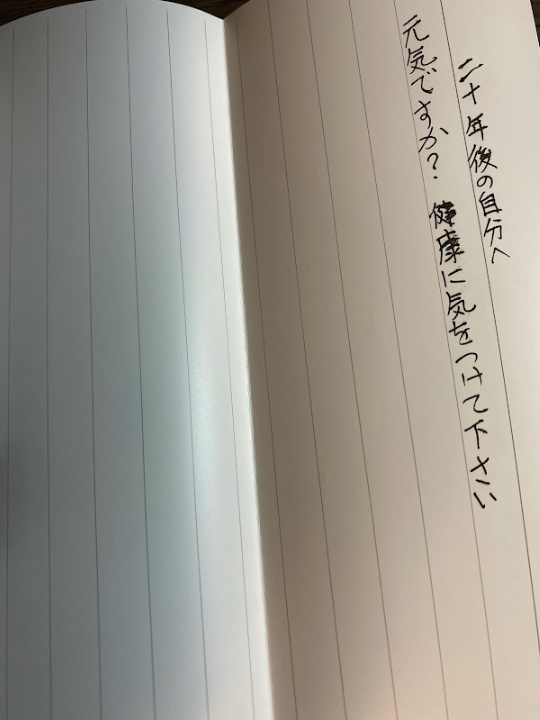 二十年後の自分へ
元気ですか？ 健康に気をつけて下さい